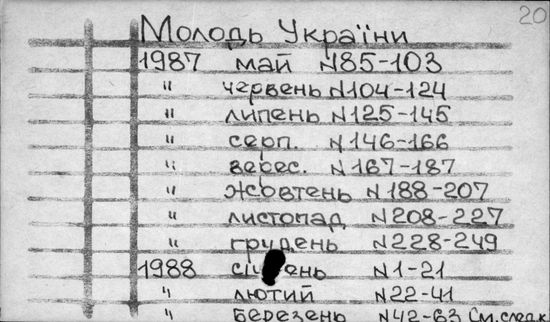 20
Молодь України
1987 май N85-103
" червень N104-124
" липень N125-145
" серп. N146-166
" верес. N167-187
" жовтень N188-207
" листопад N208-227
" грудень N228-249
1988 N1-21
" лютий N22-41
" березень N42-63 См. след.